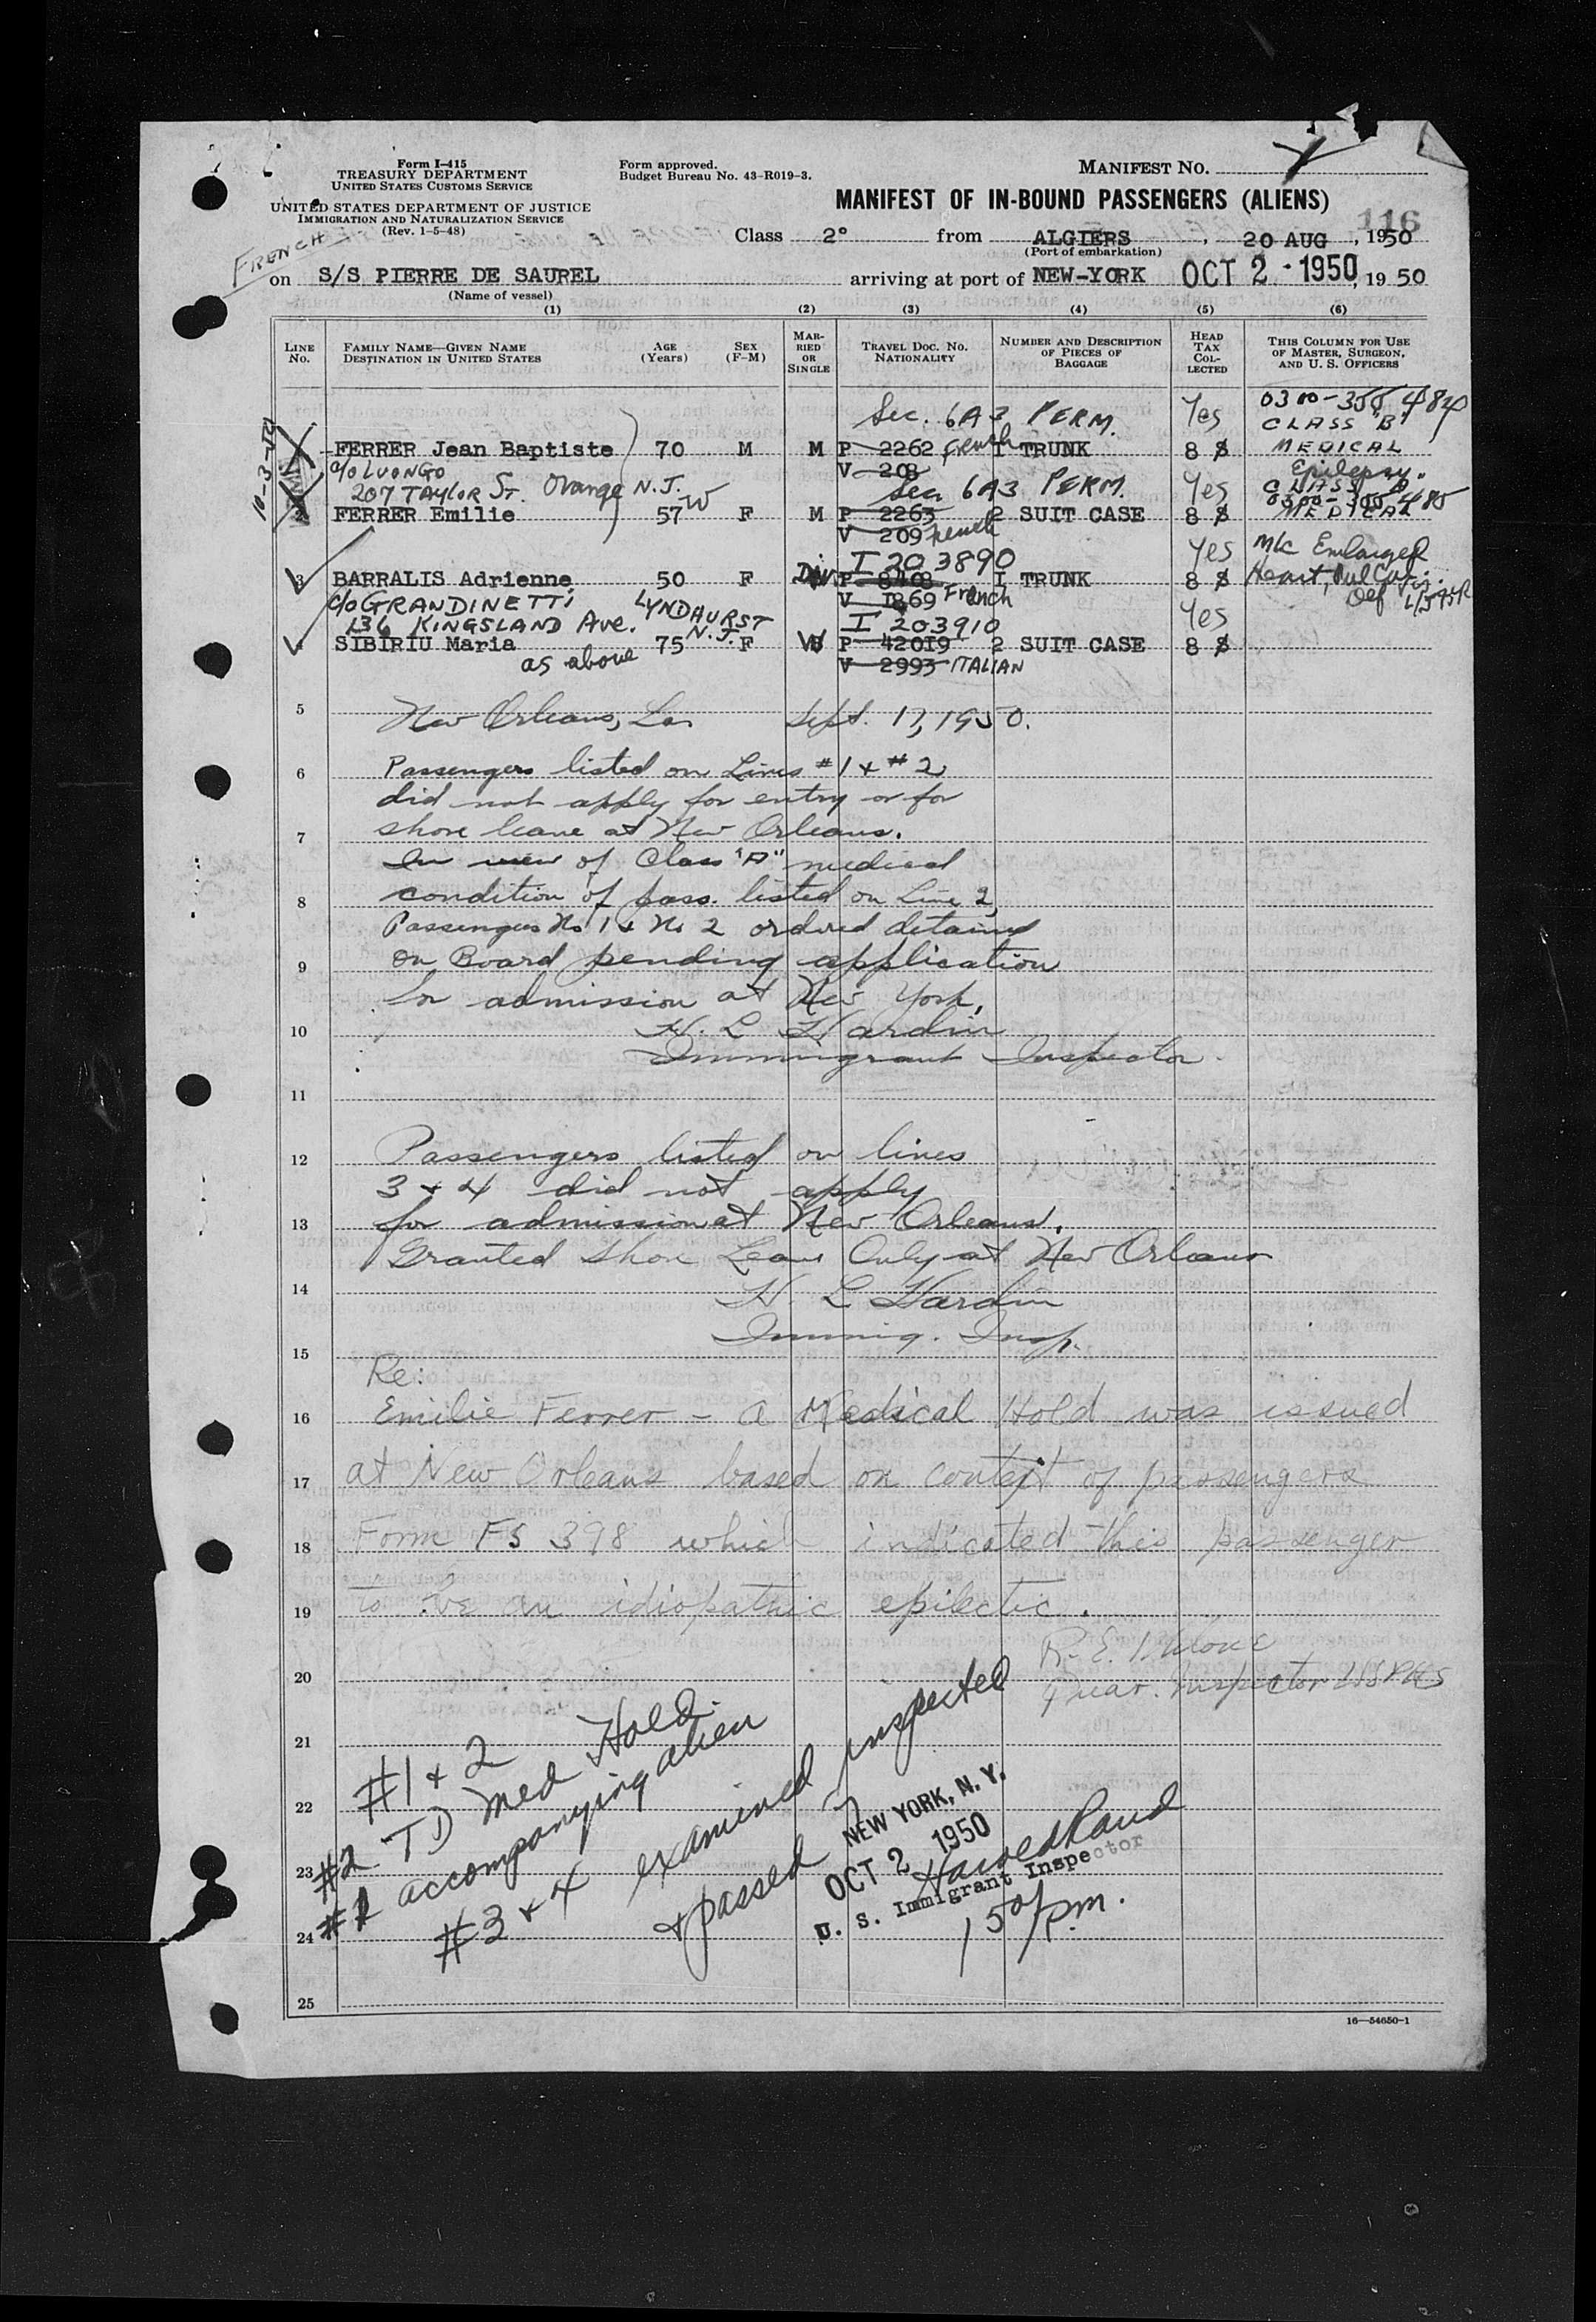 Form I-415
TREASURY DEPARTMENT
UNITED STATES CUSTOMS SERVICE
UNITED STATES DEPARTMENT OF JUSTICE
IMMIGRATION AND NATURALIZATION SERVICE
(Rev. 1-5-48)
Form approved.
Budget Bureau No. 43-R019-3.
MANIFEST NO.
MANIFEST OF IN-BOUND PASSENGERS (ALIENS)
116
FRENCH
Class 2° from ALGIERS, 20 AUG, 1950
(Port of embarkation)
on S/S PIERRE DE SAUREL arriving at port of NEW-YORK OCT 2 - 1950, 19 50
(Name of vessel)
(1) (2) (3) (4) (5) (6)
LINE No. FAMILY NAME—GIVEN NAME DESTINATION IN UNITED STATES AGE (Years) SEX (F-M) MARRIED OR SINGLE TRAVEL DOC. No. NATIONALITY NUMBER AND DESCRIPTION OF PIECES OF BAGGAGE HEAD TAX COLLECTED THIS COLUMN FOR USE OF MASTER, SURGEON, AND U. S. OFFICERS
Sec. 6A3 PERM. Yes 0300-355484
CLASS "B"
FERRER Jean Baptiste 70 M M P 2262 French 1 TRUNK 8 $ MEDICAL
c/o LUONGO V 208 Epilepsy
207 TAYLOR ST. Orange N.J. Sec 6A3 PERM. Yes CLASS "A"
W 0300-355485
FERRER Emilie 57 F M P 2263 2 SUIT CASE 8 $ MEDICAL
V 209 French
I 203890 Yes M/c Enlarged
3 BARRALIS Adrienne 50 F Div P 8408 1 TRUNK 8 $ Heart,
c/o GRANDINETTI LYNDHURST V 1869 French
136 KINGSLAND Ave. N.J. I 203910 Yes
SIBIRIU Maria 75 F W P 42019 2 SUIT CASE 8 $
as above V 2993 ITALIAN
10-3-50
5 New Orleans, La. Sept. 17, 1950.
6 Passengers listed on Lines #1 & #2
did not apply for entry or for
7 shore leave at New Orleans.
In view of Class "A" medical
8 condition of pass. listed on Line 2,
Passengers No 1 & No 2 ordered detained
9 on Board pending application
for admission at New York.
10 H. L. Hardin
Immigrant Inspector.
11
12 Passengers listed on lines
3 & 4 did not apply
13 for admission at New Orleans.
Granted Shore Leave Only at New Orleans
14 H L Hardin
Immig. Insp.
15 Re:
16 Emilie Ferrer - a Medical Hold was issued
17 at New Orleans based on context of passengers
18 Form FS 398 which indicated this passenger
19 to be an idiopathic epilectic.
R. E.
20 Quar. Inspector USPHS
21 #1 & 2
22 #2 TD Med Hold
23 #1 accompanying alien
24 #3 & 4 examined inspected
& passed
25
NEW YORK, N. Y.
OCT 2 1950
Harold Rand
U. S. Immigrant Inspector
150 p.m.
16—54650-1